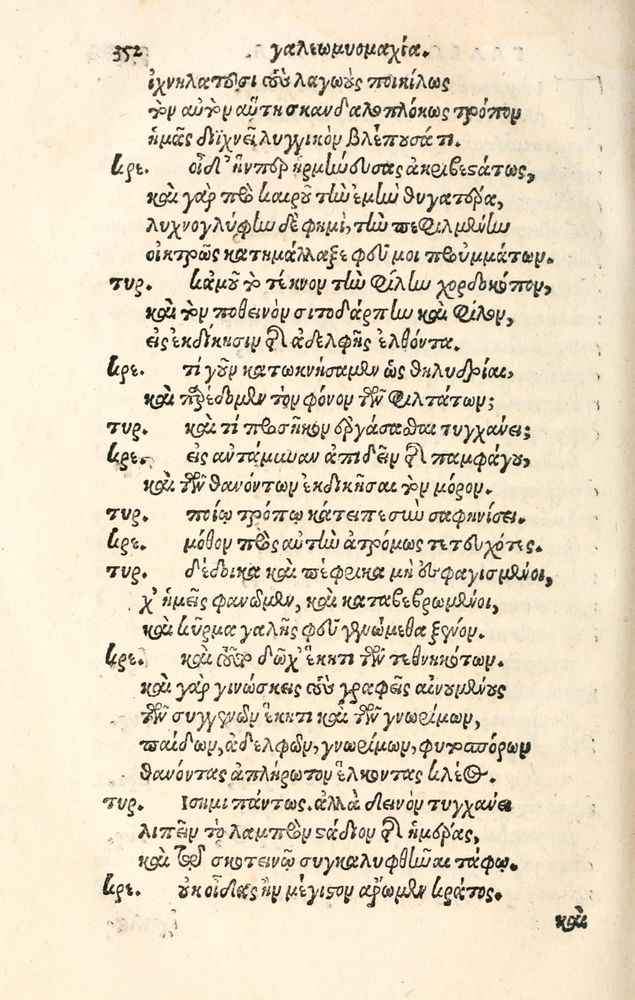 352 γαλεωμυομαχία.
ἰχνηλατοῦσι τοὺς λαγωοὺς ποικίλως
τὸν αὐτὸν αὕτη σκανδαλοπλόκως τρόπον
ἡμᾶς διϊχνεῖ λυγγικὸν βλέπουσά τι.
κρε. οἶδ' ἥνπερ ἡρμήνευσας ἀκριβεστάτως,
καὶ γὰρ πρὸ καιροῦ τὴν ἐμὴν θυγατέρα,
λυχνογλύφην δέ φημι, τὴν πεφιλμένην
οἰκτρῶς κατημάλλαξε φεῦ μοι πρὸ ὀμμάτων.
τυρ. κἀμοῦ τὸ τέκνον τὴν φίλην χορδοκόπον,
καὶ τὸν ποθεινὸν σιτοδάρπτην καὶ φίλον,
εἰς ἐκδίκησιν τῆς ἀδελφῆς ἐλθόντα.
κρε. τί γοῦν κατωκνήσαμεν ὡς θηλυδρίαι,
καὶ παρέδομεν τὸν φόνον τῶν φιλτάτων;
τυρ. καὶ τί προσῆκον ἐργάσασθαι τυγχάνει;
κρε. εἰς ἀντάμυναν ἀπιδεῖν τῆς παμφάγου,
καὶ τῶν θανόντων ἐκδικῆσαι τὸν μόρον.
τυρ. ποίῳ τρόπῳ κάτειπε σὺ σαφηνίσει.
κρε. μόθον πρὸς αὐτὴν ἀτρόμως τετευχότες.
τυρ. δέδοικα καὶ πέφρικα μὴ οὐ φαγισμένοι,
χ' ἡμεῖς φανῶμεν, καὶ καταβεβρωμένοι,
καὶ κύρμα γαλῆς φεῦ γενώμεθα ξένον.
κρε. καὶ τοῦτο δῶχ' ἕκητι τῶν τεθνηκότων.
καὶ γὰρ γινώσκεις τοὺς γραφεῖς αἰνουμένους
τῶν συγγενῶν ἕκητι καὶ τῶν γνωρίμων,
παίδων, ἀδελφῶν, γνωρίμων, φυτοσπόρων
θανόντας ἀπλήρωτον ἕλκοντας κλέος.
τυρ. Ισημι πάντως. ἀλλὰ δεινὸν τυγχάνει
λιπεῖν τὸ λαμπρὸν στάδιον τῆς ἡμέρας,
καὶ τῷ σκοτεινῷ συγκαλυφθῆναι τάφῳ.
κρε. οὐκ οἶδας ἣν μέγιστον αἴρωμεν κράτος.
καὶ